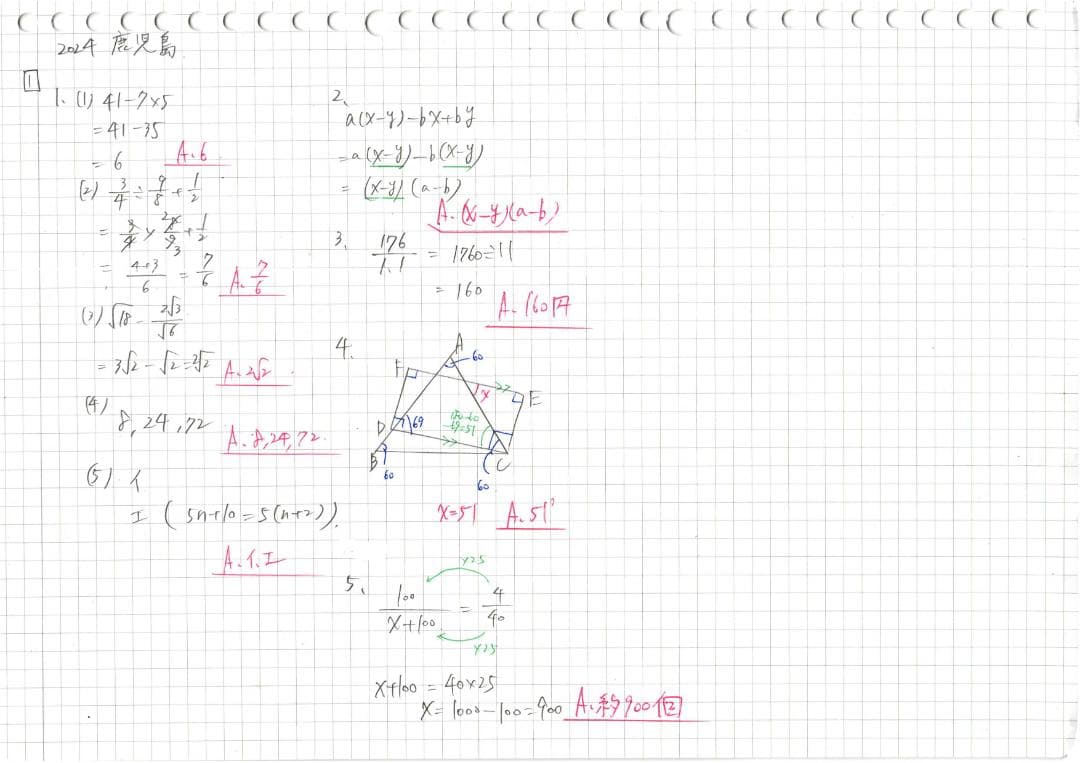 2024 鹿児島
1
1. (1) 41-7×5
=41-35
=6 A.6
(2) 3/4÷9/8+1/2
=3/4×28/93+1/2
=4+3/6=7/6 A.7/6
(3)√18-2√3/√6
=3√2-√2=2√2 A.2√2
(4)
8,24,72
A.8,24,72.
(5) イ
エ (5n+10=5(n+2)).
A.イ.エ
2、
a(x-y)-bx+by
=a(x-y)-b(x-y)
=(x-y)(a-b)
A.(x-y)(a-b)
3、 176/1.1 = 1760÷11
= 160
A.160円
4、
A
60
F
x
E
D
69
180-60
-69=51
B
60
C
60
x=51 A.51°
5、
×25
100/x+100 = 4/40
×25
x+100 = 40×25
x=1000-100=900 A.約900個